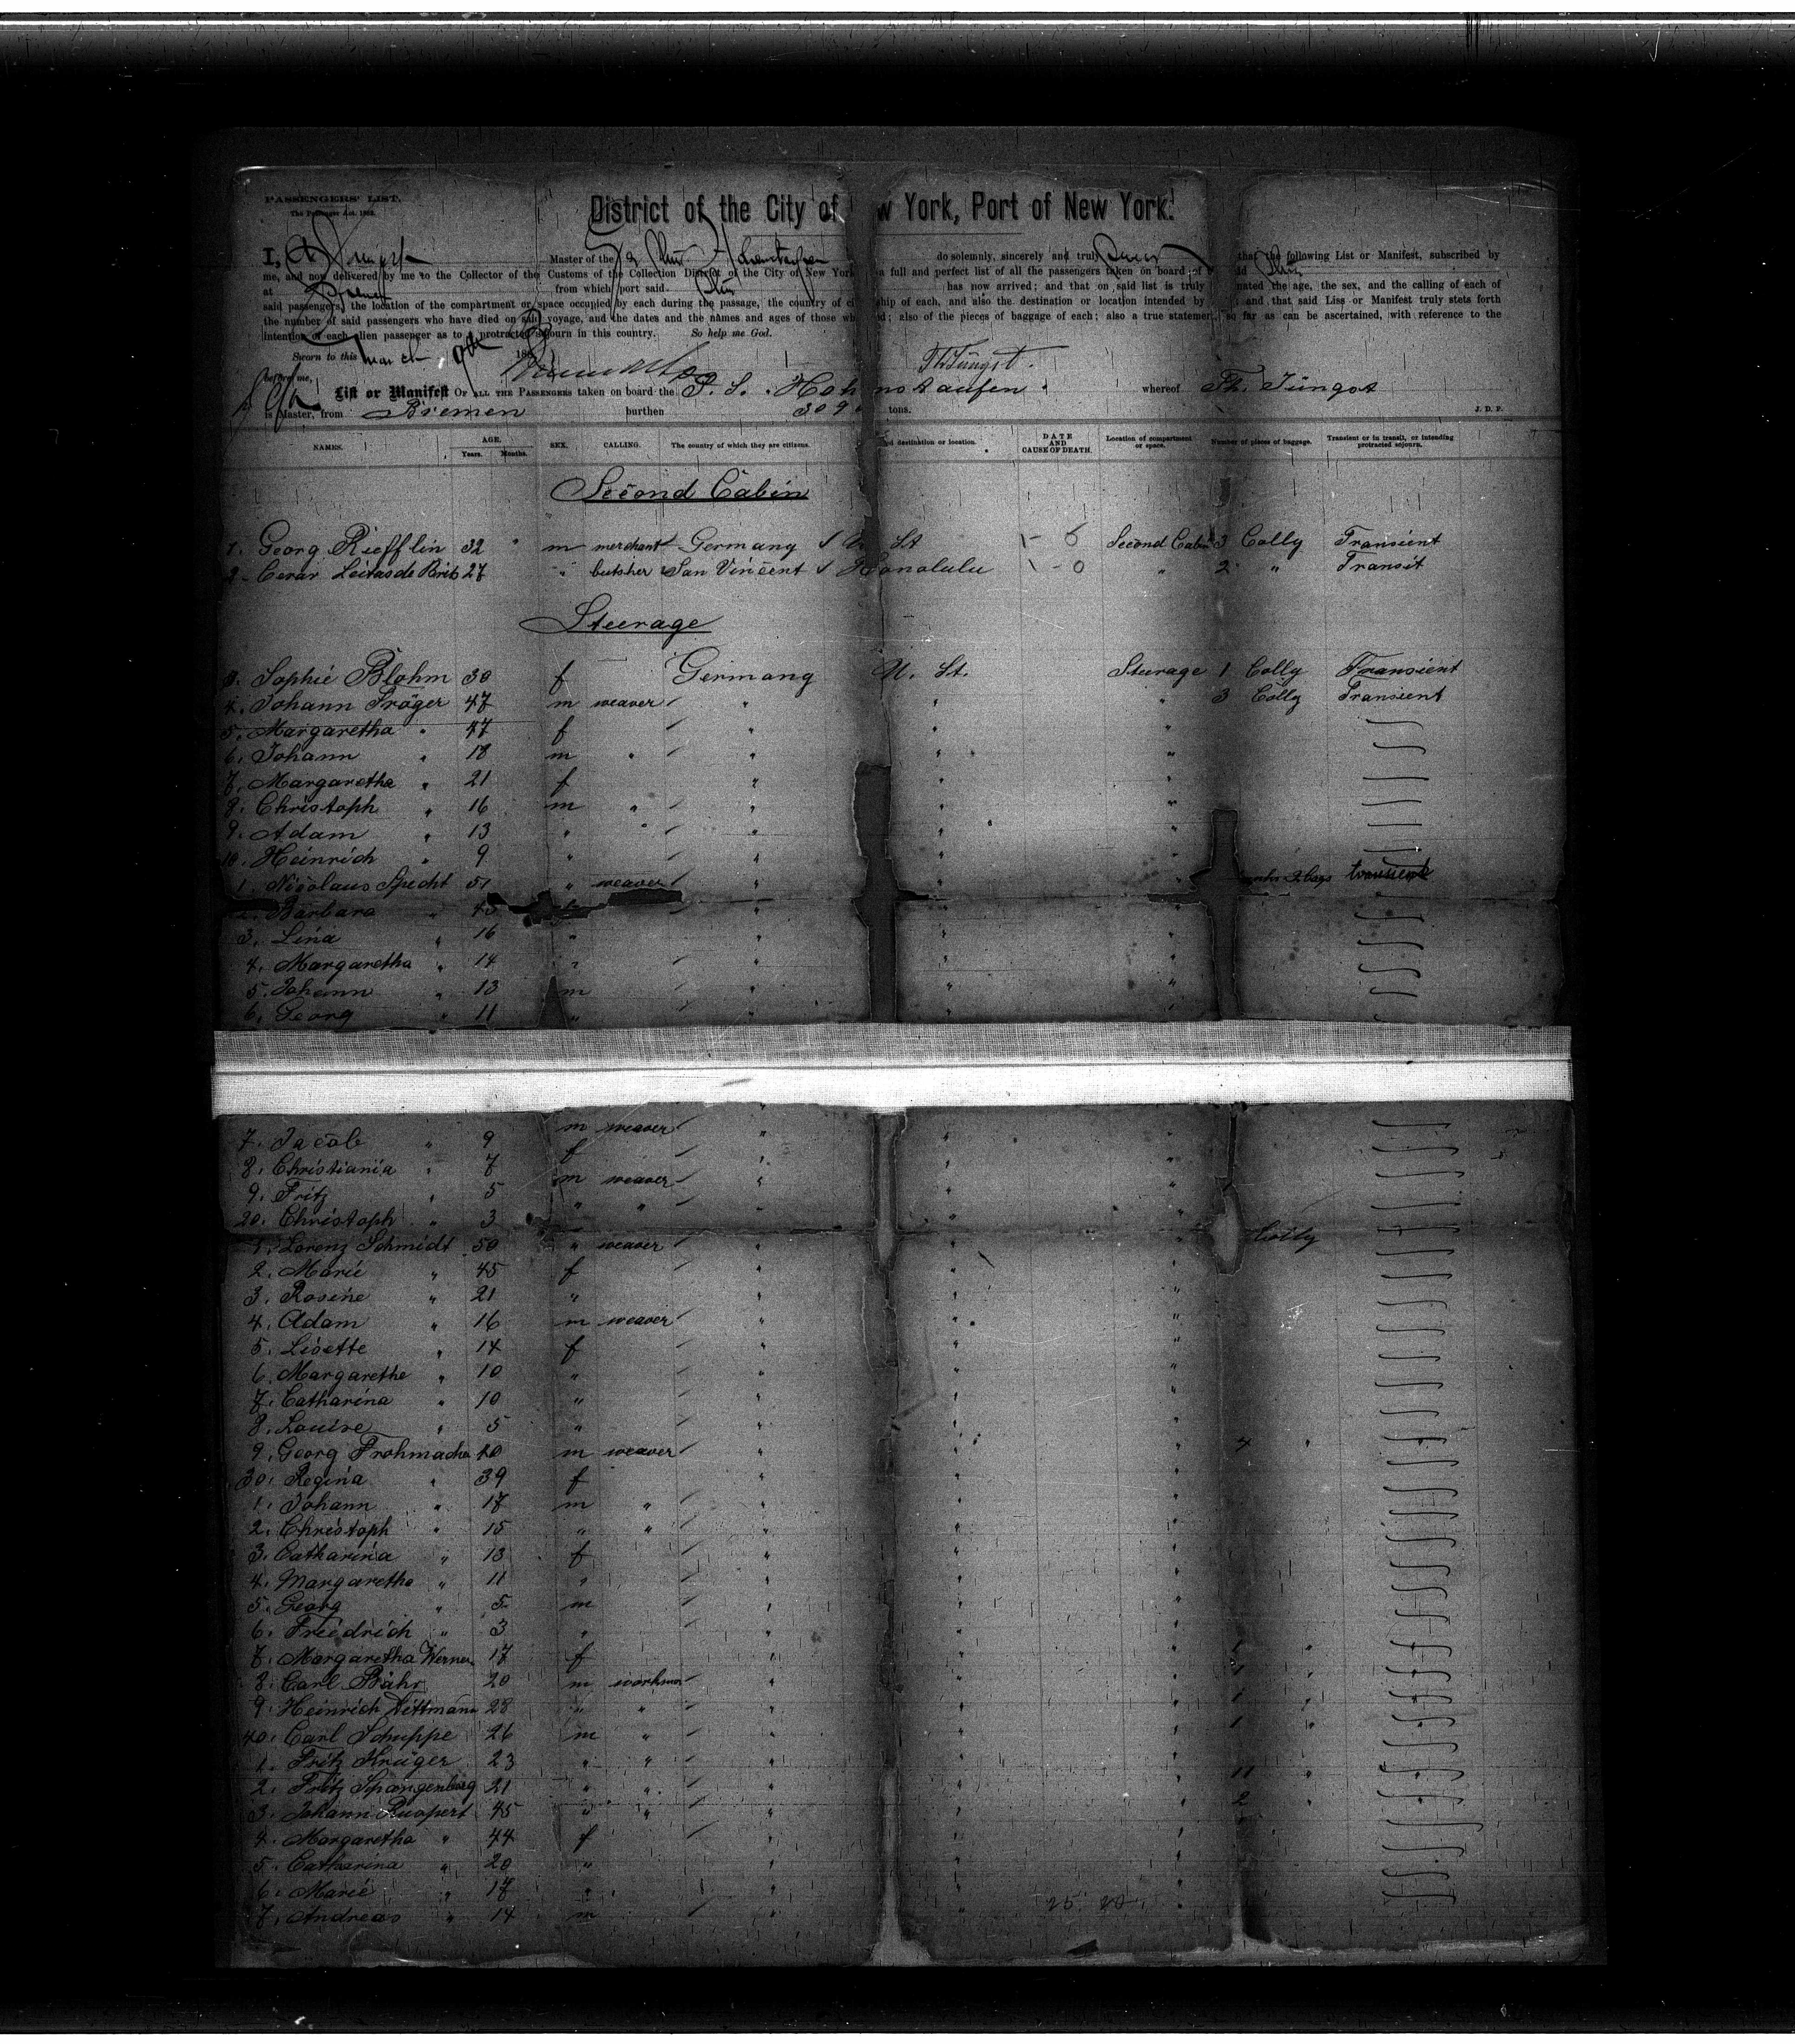 PASSENGERS' LIST.
The Passenger Act, 1882.
District of the City of w York, Port of New York.
I, Master of the do solemnly, sincerely and truly that the following List or Manifest, subscribed by
me, and now delivered by me to the Collector of the Customs of the Collection District of the City of New York n full and perfect list of all the passengers taken on board of
at Bremen from which port said has now arrived; and that on said list is truly nated the age, the sex, and the calling of each of
said passengers, the location of the compartment or space occupied by each during the passage, the country of ci ship of each, and also the destination or location intended by and that said Liss or Manifest truly stets forth
the number of said passengers who have died on said voyage, and the dates and the names and ages of those wh ed; also of the pieces of baggage of each; also a true statement, so far as can be ascertained, with reference to the
intention of each alien passenger as to a protracted sojourn in this country. So help me God.
Sworn to this March 9th 188 Th. Jüngst.
before me,
List or Manifest OF ALL THE PASSENGERS taken on board the P. S. Hohenstaufen whereof Th. Jüngst
is Master, from Bremen burthen 309 tons. J. D. P.
NAMES. AGE. Years. Months. SEX. CALLING. The country of which they are citizens. ed destination or location. DATE AND CAUSE OF DEATH. Location of compartment or space. Number of pieces of baggage. Transient or in transit, or intending protracted sojourn.
Second Cabin
1. Georg Riefflin 32 " m merchant Germany U St Second Cabin 3 Colly Transient
2. Cerar Leitas de Brit 27 " butsher San Vincent Honolulu " 2 " Transit
Steerage
3. Sophie Blohm 30 f Germany U. St. Steerage 1 Colly Transient
4. Johann Pröger 47 m weaver " " " 3 Colly Transient
5. Margaretha " 47 f " " "
6. Johann " 18 m " " " "
7. Margaretha " 21 f " " "
8. Christoph " 16 m " " " "
9. Adam " 13 " " " " "
10. Heinrich " 9 " " " "
1. Nicolaus Specht 51 " weaver " " " 2 bags transient
2. Barbara " 45 " " "
3. Lina " 16 " " " "
4. Margaretha " 14 " " " "
5. Johann " 13 m " " "
6. Georg " 11 " " " "
7. Jacob " 9 m weaver " " "
8. Christiania " 7 f " " "
9. Fritz " 5 m weaver " " "
20. Christoph " 3 " " " " "
1. Lorenz Schmidt 50 " weaver " " " Colly
2. Marie " 45 f " " "
3. Rosine " 21 " " " "
4. Adam " 16 m weaver " " "
5. Lisette " 14 f " " "
6. Margarethe " 10 " " " "
7. Catharina " 10 " " " "
8. Louise 5 " " " "
9. Georg Frohmader 40 m weaver " " " 4 "
30. Regina " 39 f " " "
1. Johann " 17 m " " " "
2. Christoph " 15 " " " " "
3. Catharina " 13 f " " "
4. Margaretha " 11 " " " "
5. Georg " 5 m " " "
6. Friedrich " 3 " " " "
7. Margaretha Werner 17 f " " " 1 "
8. Carl Bähr 20 m workman " " " 1 "
9. Heinrich Dittmann 28 " " " " " 1 "
40. Carl Schuppe 26 m " " " " 1 "
1. Fritz Krüger 23 " " " " "
2. Fritz Spangenberg 21 " " " " " 11 "
3. Johann Ruopert 45 " " " " " 2 "
4. Margaretha " 44 f " " "
5. Catharina " 20 " " " "
6. Marie " 17 " " " "
7. Andreas " 14 m " " "
25 20